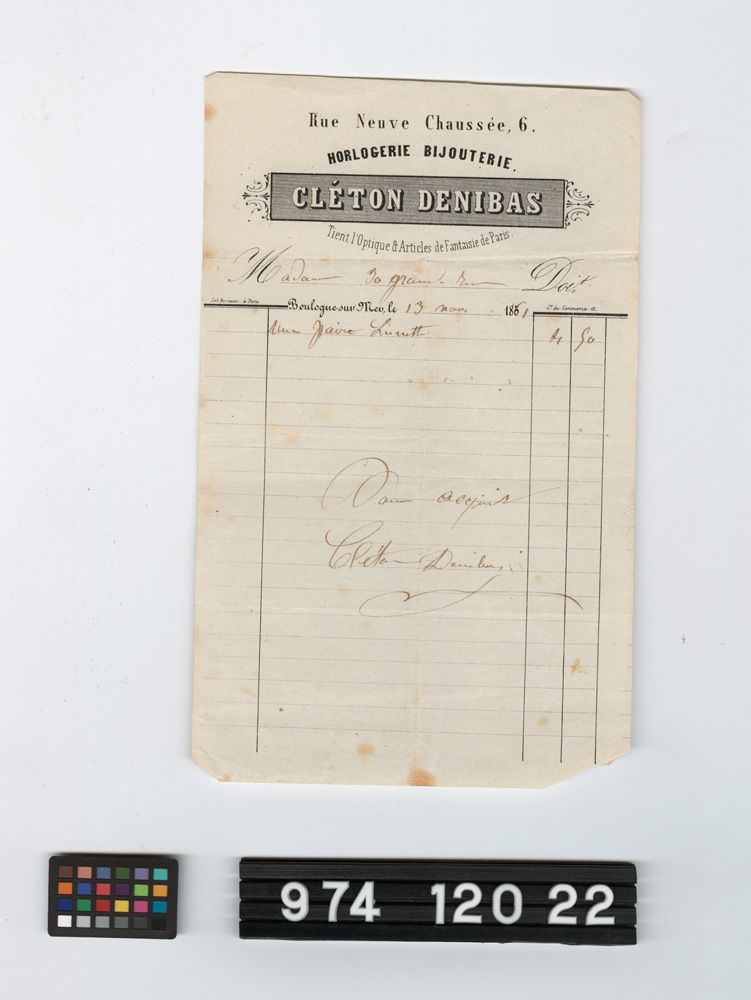 Rue Neuve Chaussée, 6.
HORLOGERIE BIJOUTERIE.
CLÉTON DENIBAS
Tient l'Optique & Articles de Fantaisie de Paris
Madame 30 grande rue Doit
Boulogne sur Mer, le 13 nov 1861
une paire Lunette 4 50
Pour acquit
Cléton Denibas
974 120 22